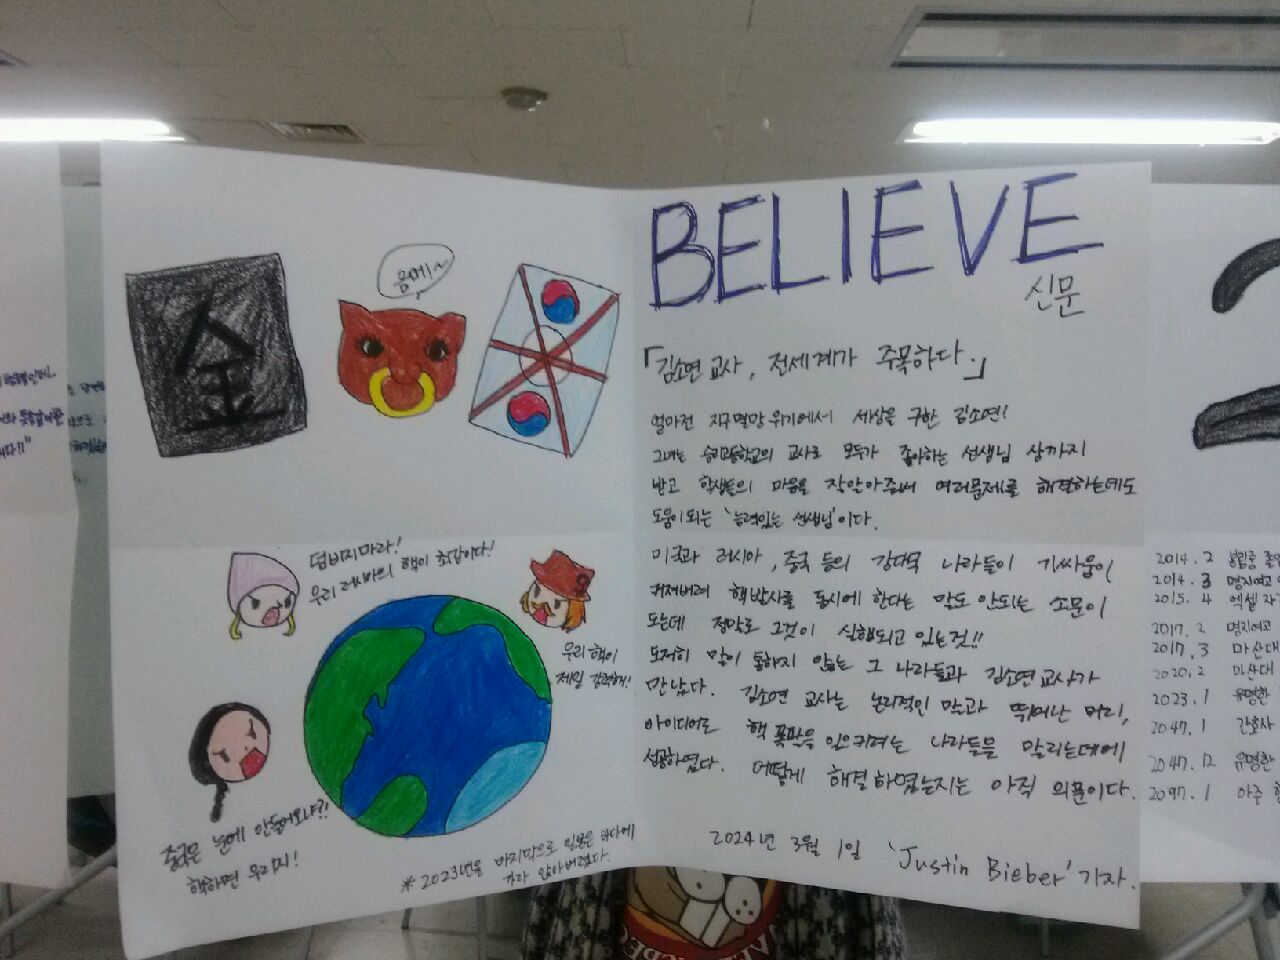 金
음메~
BELIEVE
신문
「김소연 교사, 전세계가 주목하다.」
얼마전 지구멸망 위기에서 세상을 구한 김소연!
그녀는 승리고등학교의 교사로 모두가 좋아하는 선생님 상까지
받고 학생들의 마음을 잘알아주셔서 여러문제를 해결하는데도
도움이되는 '능력있는 선생님'이다.
미국과 러시아, 중국 등의 강대국 나라들이 기싸움이
커져버려 핵발사를 동시에 한다는 말도 안되는 소문이
도는데 정말로 그것이 실행되고 있는것!!
도저히 말이 통하지 않는 그 나라들과 김소연 교사가
만났다. 김소연 교사는 논리적인 말과 뛰어난 머리,
아이디어로 핵폭팔을 일으키려는 나라들을 말리는데에
성공하였다. 어떻게 해결하였는지는 아직 의문이다.
2024년 3월 1일 'Justin Bieber'기자.
덤비지마라!
우리 러시아의 핵이 최강이다!
우리 핵이
제일 강력해!
중국은 눈에 안들어오냐?!
핵하면 우리지!
* 2023년을 마지막으로 일본은 바다에
가라 앉아버렸다.
2014. 2
2014. 3 명지여고
2015. 4 엑셀 자
2017. 2 명지여고
2017. 3 마산대
2020. 2 마산대
2023. 1 유명한
2047. 1 간호사
2047. 12 유명한
2097. 1 아주